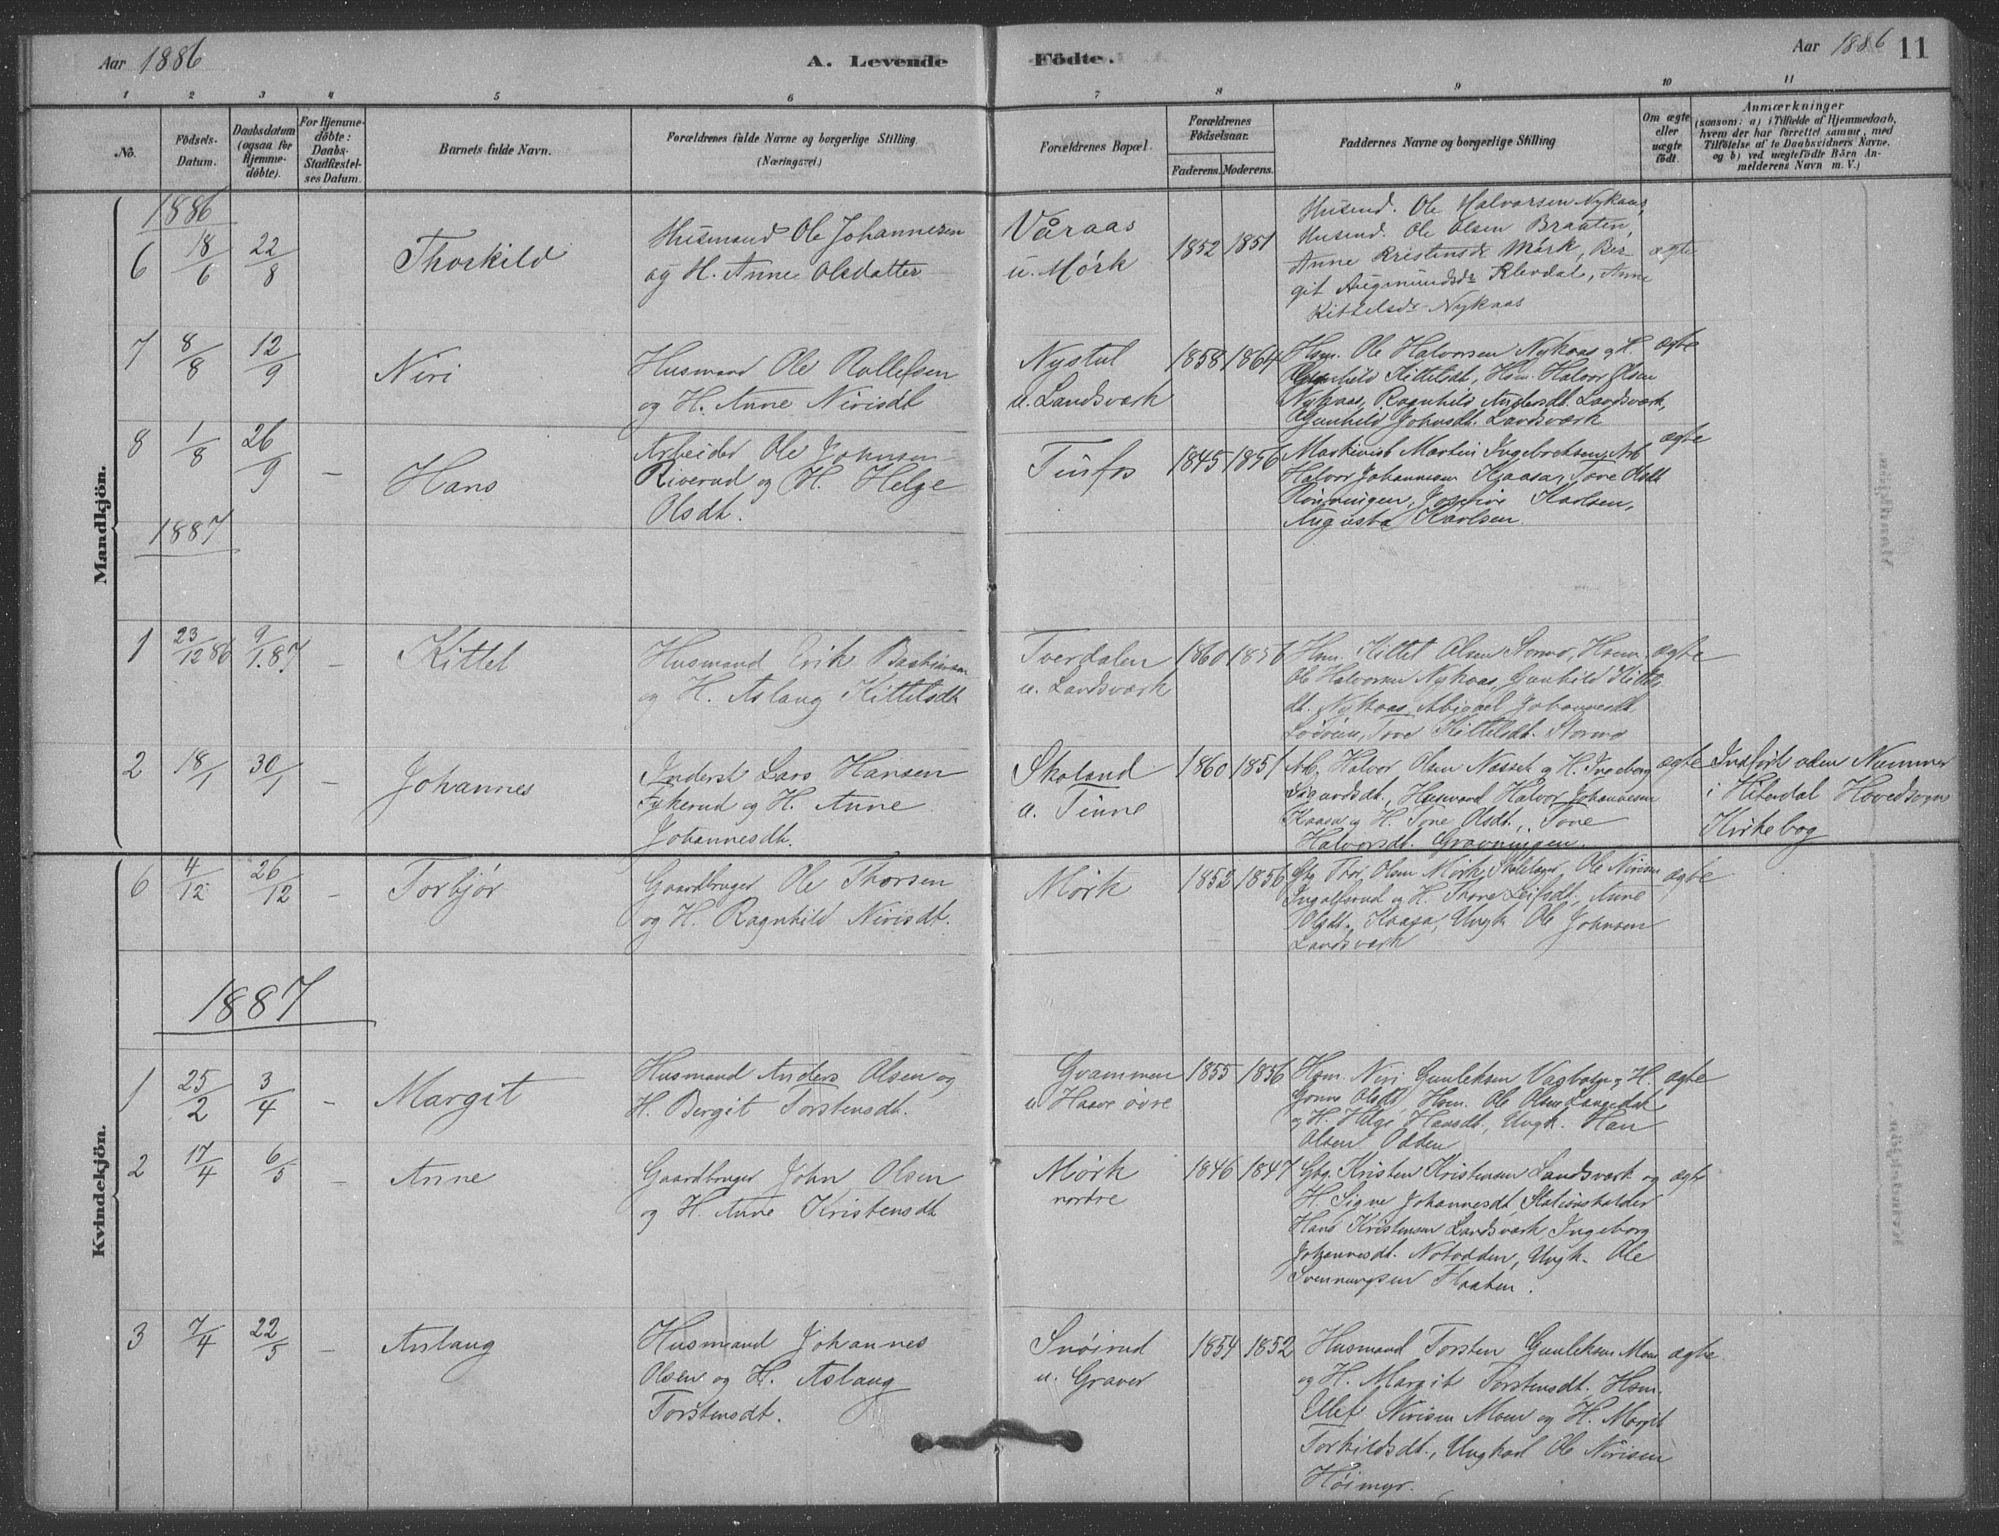 Aar 1886
A. Levende
Födte.
Aar 1886 11
1 2 3 4 5 6 7 8 9 10 11
No.
Födsels-
Datum.
Daabsdatum
(ogsaa for
Hjemme-
döbte).
For Hjemme-
döbte:
Daabs-
Stadfæstel-
ses Datum.
Barnets fulde Navn.
Forældrenes fulde Navne og borgerlige Stilling
(Næringsvei.)
Forældrenes Bopæl.
Forældrenes
Födselsaar.
Faderens. Moderens.
Faddernes Navne og borgerlige Stilling
Om ægte
eller
uægte
födt.
Anmærkninger
(saasom: a) i Tilfælde af Hjemmedaab,
hvem der har forrettet samme, med
Tilföielse af to Daabsvidners Navne,
og b) ved uægtefödte Börn An-
melderens Navn m. V.)
Mandkjön.
1886
6 18/6 22/8 Thorkild
Husmand Ole Johannesen
og H. Anne Olsdatter
Våraas
u. Mørk
1852 1851
Husmd. Ole Halvorsen Nykaas,
Husmd. Ole Olsen Braaten,
Anne Kristensdr Mørk, Ber-
git Augmundsdr Klevdal, Anne
Kittelsdr Nykaas
ægte
7 8/8 12/9 Niri
Husmand Ole Rollefsen
og H. Anne Nirisdt
Nystul
u. Landsværk
1858 1864
Hsm. Ole Halvorsen Nykaas og H.
Gunhild Kittelsdt, Hsm. Halvor Olsen
Nykaas, Ragnhild Andersdt. Landsværk,
Gunhild Johnsdt. Landsværk
ægte
8 1/8 26/9 – Hans
Arbeider Ole Johnsen
Riverud og H. Helge
Olsdt.
Tinfos
1845 1856
Maskinist Martin Ingebretsen, Arb
Halvor Johannesen Kaasa, Tove Olsdt
Rønningen, Josefine Karlsen,
Augusta Karlsen.
ægte
1887
1 23/12 86 9/1.87 – Kittel
Husmand Erik Bastiansen
og H. Aslaug Kittelsdt
Tverdalen
u. Landsværk
1860 1856
Hsm. Kittel Olsen Stormo, Hsm.
Ole Halvorsen Nykaas, Gunhild Kittels
dt. Nykaas, Abigael Johannesdt
Tove Kittelsdt. Stormo
ægte
2 18/1 30/1 – Johannes
Inderst Lars Hansen
Fykerud og H. Anne
Johannesdt.
Skoland
u. Tinne
1860 1851
Arb. Halvor Olsen Næsset og H. Ingeborg
Sigurdsdt., Husmand Halvor Johannesen
Kaasa og H. Tone Olsdt., Tone
Halvorsdt. Grønningen.
ægte
Indført uden Nummer
i Hiterdal Hovedsogns
Kirkebog
Kvindekjön.
6 4/12 26/12 – Torbjør
Gaardbruger Ole Thorsen
og H. Ragnhild Nirisdt.
Mørk
1852 1856
Gbg Thor Olsen Mørk, Ole Nirisen
Ingolfsrud og H. Thone Leifsdt, Anne
Olsdt. Kaasa, Ungk Ole Johnsen
Landsværk
ægte
1887
1 25/2 3/4 – Margit
Husmand Anders Olsen og
H. Bergit Torstensdt.
Grammen
u Haave øvre
1855 1856
Hsm. Niri Gunleksen og H.
Gonne Olsdt Hsm. Ole Olsen
og H. Helge Hansdt, Ungk. Han
Olsen Odden
ægte
2 17/4 6/5 – Anne
Gaardbruger John Olsen
og H. Anne Kristensdt
Mørk
nordre
1846 1847
Gbg. Kristen Kristensen Landsværk og
H. Signe Johannesdt, Stationsholder
Hans Kristensen Landsværk, Ingeborg
Johannesdt. Notodden, Ungk. Ole
Svennungsen Haaten.
ægte
3 7/4 22/5 – Aslaug
Husmand Johannes
Olsen og H. Aslaug
Torstensdt.
Snøirud
u. Graver
1854 1852
Husmand Torsten Gunleksen Moen
og H. Margit Torstensdt. Hsm.
Ellef Nirisen Moen og H. Margit
Torkildsdt., Ungkarl Ole Nirisen
Høimyr.
ægte